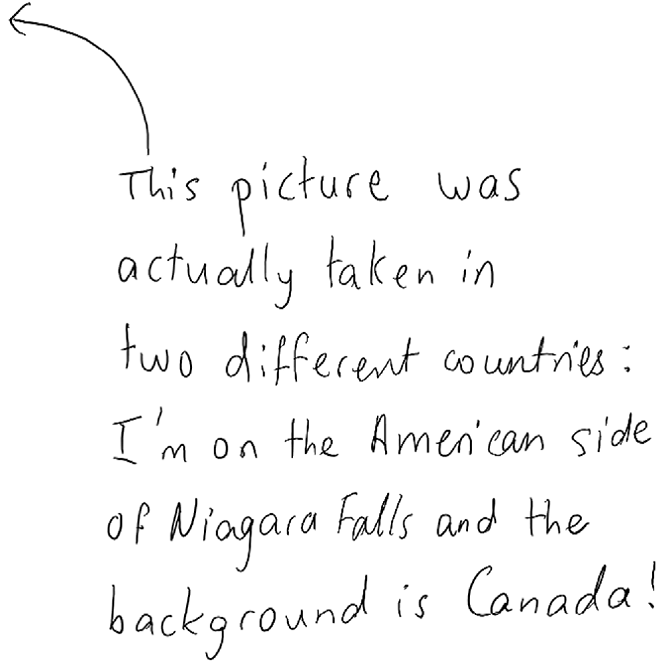 This picture was
actually taken in
two different countries:
I'm on the American side
of Niagara Falls and the
background is Canada!